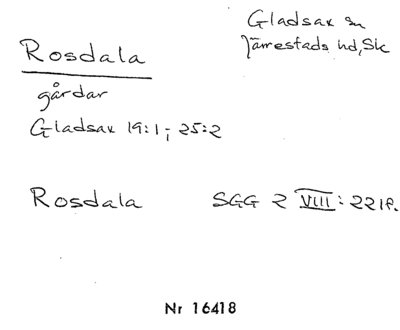 Rosdala
Gladsax sn
Järrestads hd, Sk
gårdar
Gladsax 19:1; 25:2
Rosdala SGG 2 VIII: 221f.
Nr 16418